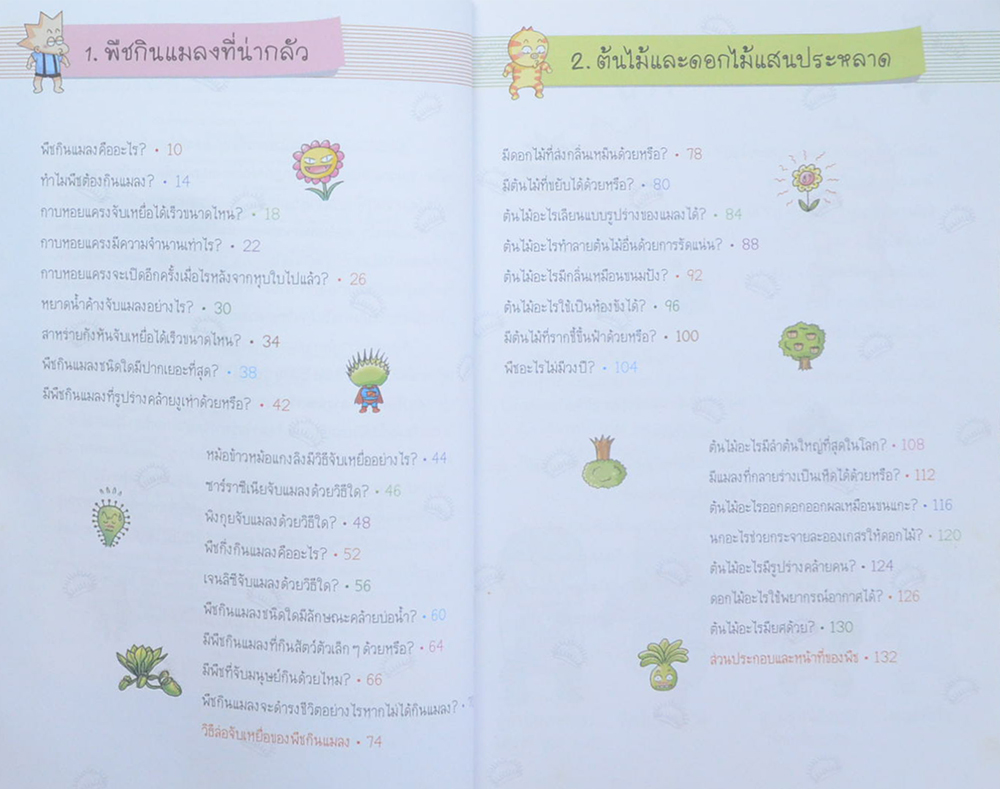 1. พืชกินแมลงที่น่ากลัว
พืชกินแมลงคืออะไร? • 10
ทำไมพืชต้องกินแมลง? • 14
กาบหอยแครงจับเหยื่อได้เร็วขนาดไหน? • 18
กาบหอยแครงมีความจำนานเท่าไร? • 22
กาบหอยแครงจะเปิดอีกครั้งเมื่อไรหลังจากหุบใบไปแล้ว? • 26
หยาดน้ำค้างจับแมลงอย่างไร? • 30
สาหร่ายกังหันจับเหยื่อได้เร็วขนาดไหน? • 34
พืชกินแมลงชนิดใดมีปากเยอะที่สุด? • 38
มีพืชกินแมลงที่รูปร่างคล้ายงูเห่าด้วยหรือ? • 42
หม้อข้าวหม้อแกงลิงมีวิธีจับเหยื่ออย่างไร? • 44
ซาร์ราซีเนียจับแมลงด้วยวิธีใด? • 46
พิงกุยจับแมลงด้วยวิธีใด? • 48
พืชกึ่งกินแมลงคืออะไร? • 52
เจนลิซีจับแมลงด้วยวิธีใด? • 56
พืชกินแมลงชนิดใดมีลักษณะคล้ายบ่อน้ำ? • 60
มีพืชกินแมลงที่กินสัตว์ตัวเล็กๆ ด้วยหรือ? • 64
มีพืชที่จับมนุษย์กินด้วยไหม? • 66
พืชกินแมลงจะดำรงชีวิตอย่างไรหากไม่ได้กินแมลง? •
วิธีล่อจับเหยื่อของพืชกินแมลง • 74
2. ต้นไม้และดอกไม้แสนประหลาด
มีดอกไม้ที่ส่งกลิ่นเหม็นด้วยหรือ? • 78
มีต้นไม้ที่ขยับได้ด้วยหรือ? • 80
ต้นไม้อะไรเลียนแบบรูปร่างของแมลงได้? • 84
ต้นไม้อะไรทำลายต้นไม้อื่นด้วยการรัดแน่น? • 88
ต้นไม้อะไรมีกลิ่นเหมือนขนมปัง? • 92
ต้นไม้อะไรใช้เป็นห้องขังได้? • 96
มีต้นไม้ที่รากชี้ขึ้นฟ้าด้วยหรือ? • 100
พืชอะไรไม่มีวงปี? • 104
ต้นไม้อะไรมีลำต้นใหญ่ที่สุดในโลก? • 108
มีแมลงที่กลายร่างเป็นเห็ดได้ด้วยหรือ? • 112
ต้นไม้อะไรออกดอกออกผลเหมือนขนแกะ? • 116
นกอะไรช่วยกระจายละอองเกสรให้ดอกไม้? • 120
ต้นไม้อะไรมีรูปร่างคล้ายคน? • 124
ดอกไม้อะไรใช้พยากรณ์อากาศได้? • 126
ต้นไม้อะไรมียศด้วย? • 130
ส่วนประกอบและหน้าที่ของพืช • 132